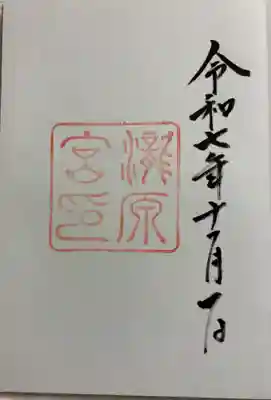 令和七年十一月一日
瀧原
宮印